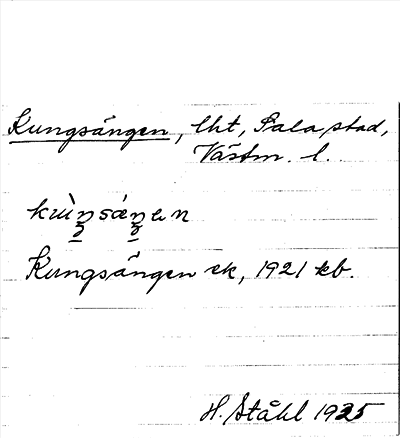 Kungsängen, lht, Sala stad,
Västm. l.
kuŋ̀sǽŋen
Kungsängen ek, 1921 kb.
H. Ståhl 1925